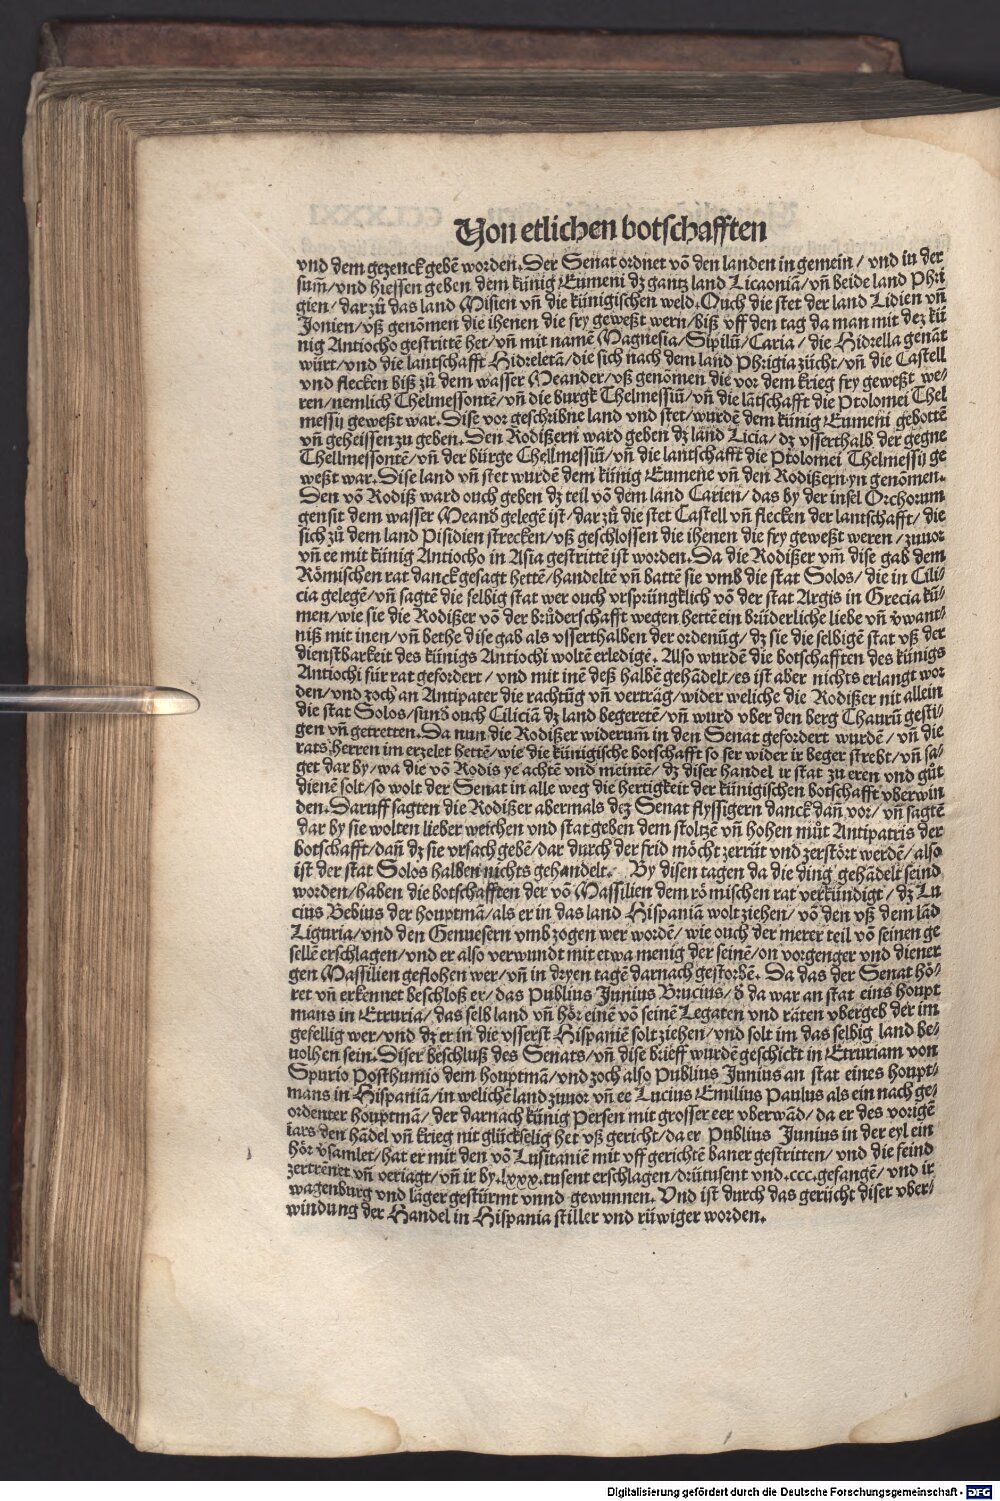 Von etlichen botschafften
vnd dem gezenck gebē worden. Der Senat ordnet vō den landen in gemein / vnd in der
sum̄/vnd hiessen geben dem künig Eumeni dz gantz land Licaoniā/vn̄ beide land Phri
gien/dar zů das land Misien vn̄ die künigischen weld. Ouch die stet der land Lidien vn̄
Jonien/vß genōmen die ihenen die fry geweßt wern/biß vff den tag da man mit dez kü
nig Antiocho gestrittē het/vn̄ mit namē Magnesia/Sipilū/Caria / die Hidrella genāt
würt/vnd die lantschafft Hidreletā/die sich nach dem land Phrigia zücht/vn̄ die Castell
vnd flecken biß zů dem wasser Meander/vß genōmen die vor dem krieg fry geweßt we-
ren/nemlich Thelmessontē/vn̄ die burgk Thelmessiū/vn̄ die lātschafft die Ptolomei Thel
messij geweßt war. Dise vor geschribne land vnd stet/wurdē dem künig Eumeni gebottē
vn̄ geheissen zu geben. Den Rodißern ward geben dz land Licia/dz vsserthalb der gegne
Thellmessontē/vn̄ der bürge Thellmessiū/vn̄ die lantschafft die Ptolomei Thelmessij ge
weßt war. Dise land vn̄ stet wurdē dem künig Eumene vn̄ den Rodißern yn genōmen.
Den vō Rodiß ward ouch geben dz teil vō dem land Carien/das by der insel Orchorum
gensit dem wasser Meand̄ gelegē ist/dar zů die stet Castell vn̄ flecken der lantschafft/die
sich zů dem land Pisidien strecken/vß geschlossen die ihenen die fry geweßt weren/zuuor
vn̄ ee mit künig Antiocho in Asia gestrittē ist worden. Da die Rodißer vm̄ dise gab dem
Römischen rat danck gesagt hettē/handeltē vn̄ battē sie vmb die stat Solos/die in Cili-
cia gelegē/vn̄ sagtē die selbig stat wer ouch vrsprüngklich vō der stat Argis in Grecia kū-
men/wie sie die Rodißer vō der brůderschafft wegen hettē ein brüderliche liebe vn̄ v̄want-
niß mit inen/vn̄ bethe dise gab als vsserthalben der ordenūg/dz sie die selbigē stat vß der
dienstbarkeit des künigs Antiochi woltē erledigē. Also wurdē die botschafften des künigs
Antiochi für rat gefordert / vnd mit inē deß halbē gehādelt/es ist aber nichts erlangt wor
den/vnd zoch an Antipater die rachtūg vn̄ vertrāg/wider weliche die Rodißer nit allein
die stat Solos/sund̄ ouch Ciliciā dz land begeretē/vn̄ wurd vber den berg Thaurū gesti-
gen vn̄ getretten. Da nun die Rodißer widerum̄ in den Senat gefordert wurdē/vn̄ die
rats herren im erzelet hettē/wie die künigische botschafft so ser wider ir beger strebt/vn̄ sa-
get dar by/wa die vō Rodis ye achtē vnd meintē/dz diser handel ir stat zu eren vnd gůt
dienē solt/so wolt der Senat in alle weg die hertigkeit der künigischen botschafft vberwin
den. Daruff sagten die Rodißer abermals dez Senat flyssigern danck dan̄ vor/vn̄ sagtē
dar by sie wolten lieber weichen vnd stat geben dem stoltzē vn̄ hohen můt Antipatris der
botschafft/dan̄ dz sie vrsach gebē/dar durch der frid möcht zerrüt vnd zerstört werdē/also
ist der stat Solos halben nichts gehandelt. By disen tagen da die ding gehādelt seind
worden/haben die botschafften der vō Massilien dem römischen rat verkündigt/dz Lu
cius Bebius der houptmā/als er in das land Hispaniā wolt ziehen/vō den vß dem lād
Liguria/vnd den Genuesern vmb zogen wer wordē/wie ouch der merer teil vō seinen ge
sellē erschlagen/vnd er also verwundt mit etwa menig der seinē/on vorgenger vnd diener
gen Massilien geflohen wer/vn̄ in dryen tagē darnach gestorbē. Da das der Senat hö-
ret vn̄ erkennet beschloß er/das Publius Junius Brucius/d̄ da war an stat eins houpt
mans in Etruria/das selb land vn̄ hör einē vō seinē Legaten vnd räten vbergeb der im
gefellig wer/vnd dz er in die vsserst Hispaniē solt ziehen/vnd solt im das selbig land be-
uolhen sein. Diser beschluß des Senats/vn̄ dise brieff wurdē geschickt in Etruriam von
Spurio Posthumio dem houptmā/vnd zoch also Publius Junius an stat eines houpt-
mans in Hispaniā/in welichē land zuuor vn̄ ee Lucius Emilius Paulus als ein nach ge-
ordenter houptmā/der darnach künig Persen mit grosser eer vberwād/da er des vorigē
iars den hādel vn̄ krieg nit glückselig het vß gericht/da er Publius Junius in der eyl ein
hör v̄samlet/hat er mit den vō Lusitaniē mit vff gerichtē baner gestritten/vnd die feind
zertrēnet vn̄ veriagt/vn̄ ir by.lxxx.tusent erschlagen/drütusent vnd.ccc.gefangē/vnd ir
wagenburg vnd läger gestürmt vnnd gewunnen. Vnd ist durch das gerücht diser vber-
windung der Handel in Hispania stiller vnd rüwiger worden.
Digitalisierung gefördert durch die Deutsche Forschungsgemeinschaft - DFG